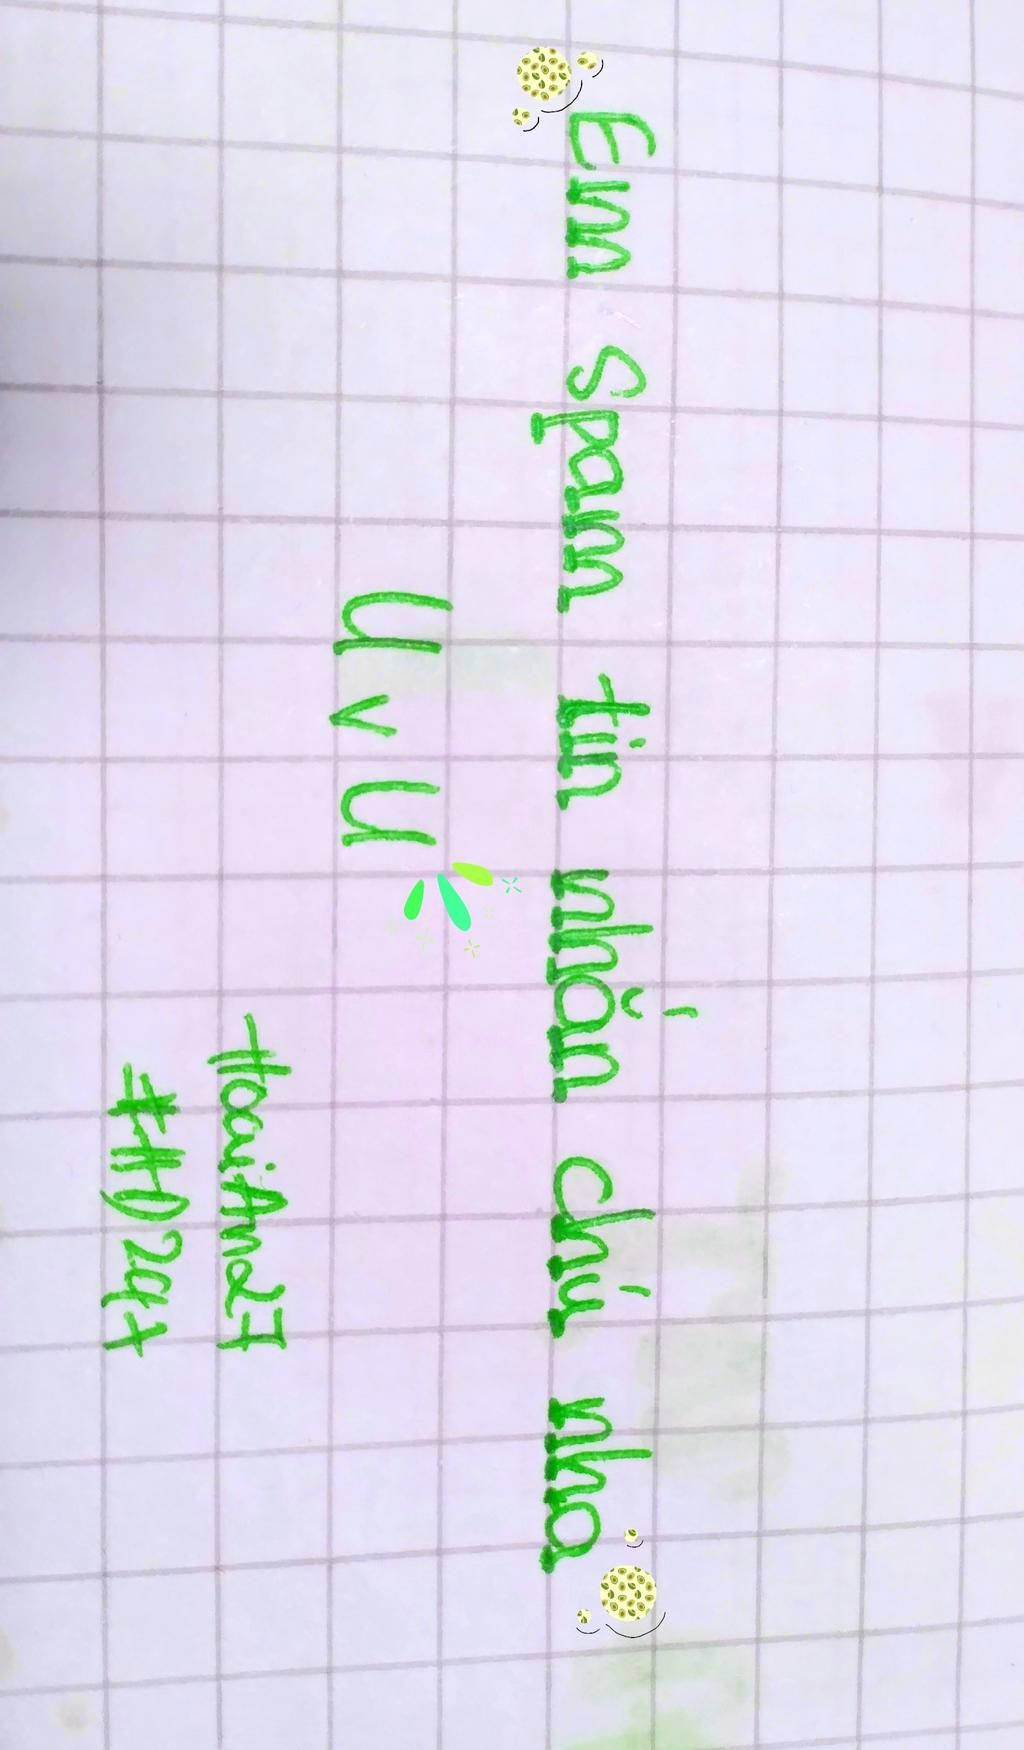 Em spam tin nhắn chú nha
U v U
HoaiAn27
#HD247